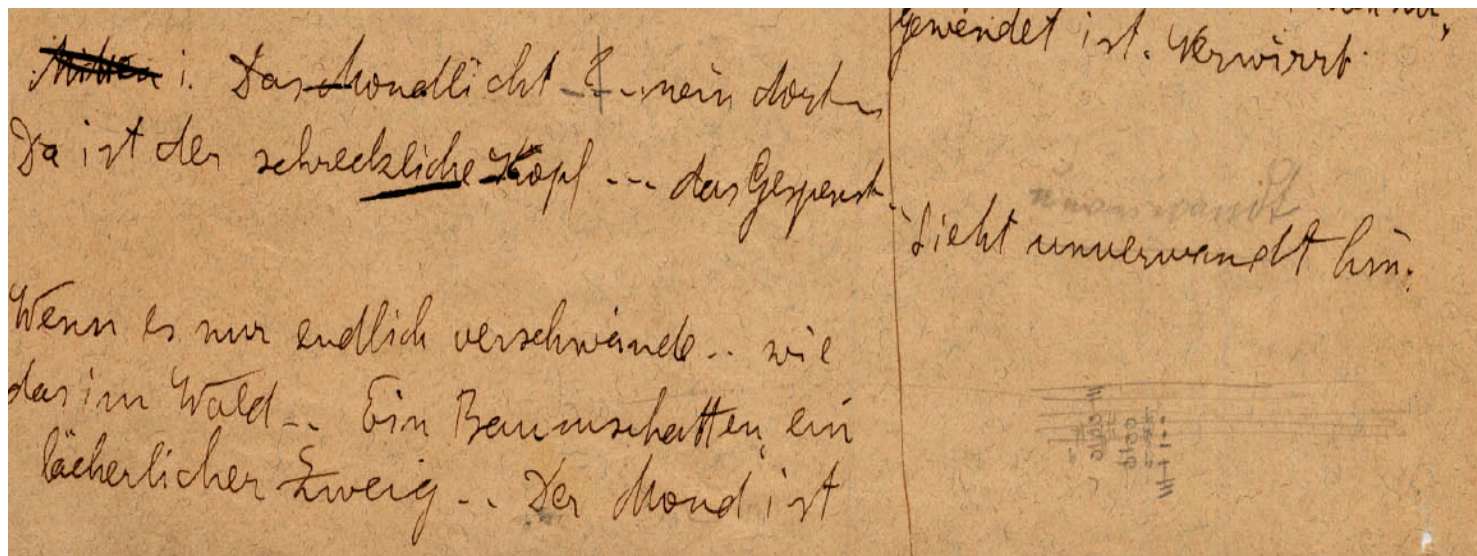 i. Das Mondlicht .. nein dort..
Da ist der schreckliche Kopf ... das Gespenst..
Wenn es nur endlich verschwände.. wie
das im Wald.. Ein Baumschatten, ein
lächerlicher Zweig.. Der Mond ist
gewendet ist. Verwirrt.
unverwandt
Sieht unverwandt hin.